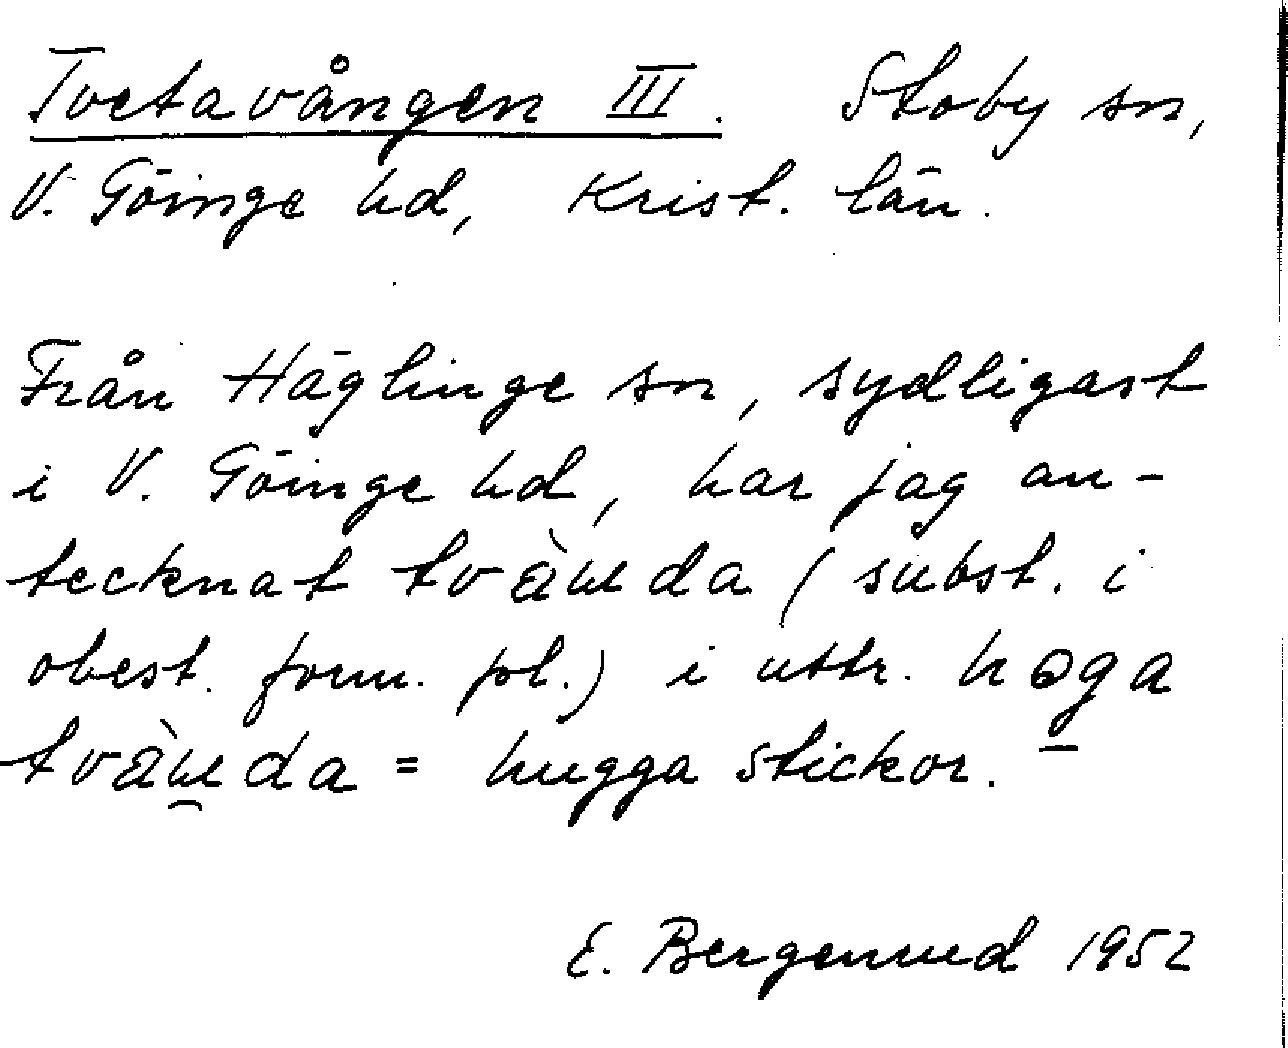 Tvetavången III. Stoby sn,
V. Göinge hd, Krist. län.
Från Häglinge sn, sydligast
i V. Göinge hd, har jag an-
tecknat (subst. i
obest. form. pl.) i uttr. høga
= hugga stickor. –
E. Bergenwed 1952